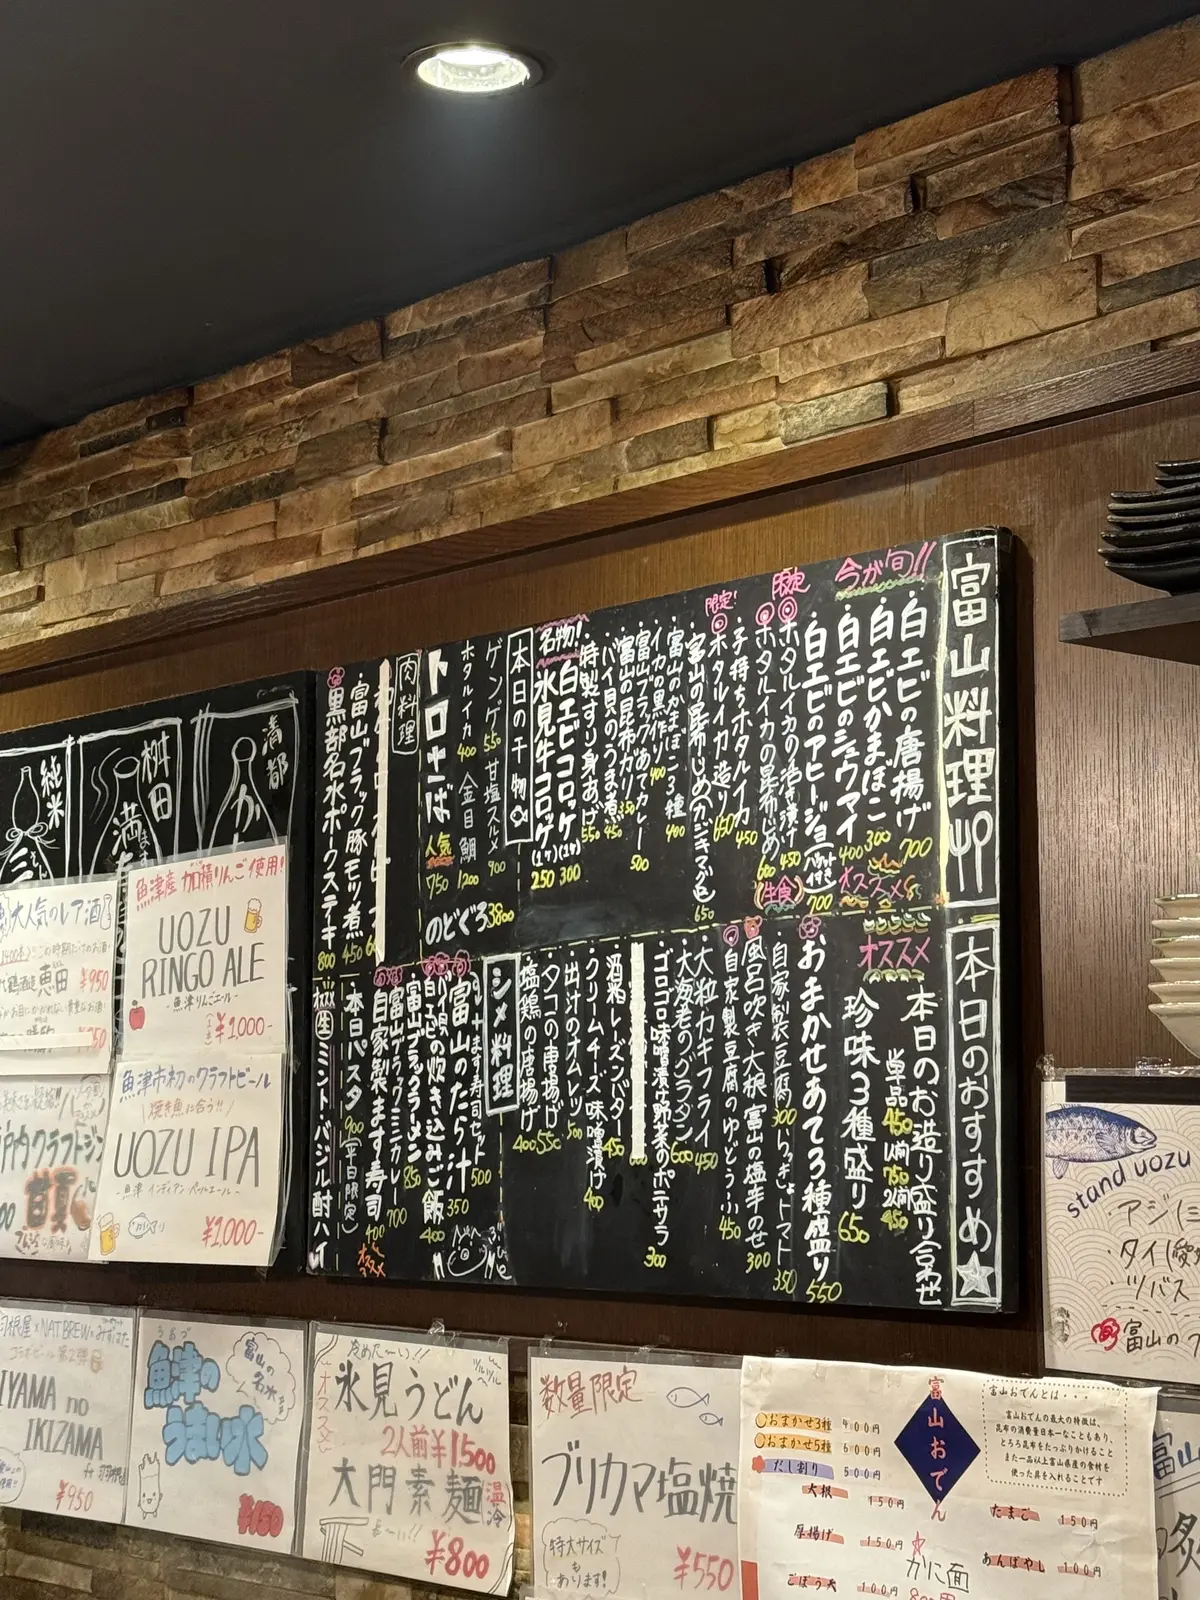 富山料理
今が旬!!
・白エビの唐揚げ 700
・白エビかまぼこ 300
・白エビのシュウマイ 400
オススメ
・白エビのアヒージョ 700
限定
・ホタルイカの沖漬け 450
・ホタルイカの昆布じめ 600
(生食)
・子持ちホタルイカ 450
限定!
・ホタルイカ造り 650
・富山の昆布じめカジキマグロ 650
・富山のかまぼこ3種 400
・イカの黒作り 400
・富山ブラックあてカレー 500
・富山の昆布ガリ 350
・バイ貝のうま煮 450
・特製すり身あげ 550
名物!
白エビコロッケ(1ケ) 300
氷見牛コロッケ(1ケ) 250
本日の干物
ゲンゲ 550
甘塩スルメ 900
ホタルイカ 400
金目鯛 1200
トロサバ
人気
750
のどぐろ 3800
肉料理
・富山ブラック豚モツ煮 450
・黒部名水ポークステーキ 800
本日のおすすめ
オススメ
本日のお造り盛り合わせ
単品 450
1人前 750
2人前 950
珍味3種盛り 650
おまかせあて3種盛り 550
・自家製豆腐 300
・らっきょトマト 350
・風呂吹き大根 富山の塩辛のせ 300
・自家製豆腐のゆどうふ 450
・大粒カキフライ 450
・大海老のグラタン 600
・ゴロゴロ味噌漬け野菜のポテサラ 300
・酒粕レーズンバター 450
・クリームチーズ味噌漬け 400
・出汁のオムレツ 500
・タコの唐揚げ 550
・塩鶏の唐揚げ 400
シメ料理
ます寿司セット 500
・富山のたら汁 350
・バイ貝の炊き込みご飯 400
・富山ブラックラーメン 850
・富山ブラックミニカレー 700
自家製ます寿司 400
オススメ
・本日パスタ 900(平日限定)
オススメ
生ミント・バジル酎ハイ
満都
桝田
純米
魚津産加積りんご使用!
UOZU
RINGO ALE
-魚津りんごエール-
¥1,000-
魚津市初のクラフトビール
\焼き魚に合う!!/
UOZU IPA
-魚津 インディアンペールエール-
¥1,000-
大人気のレア酒
¥950
クラフトジン
NAT BREW
IYAMA no
IKIZAMA
¥950
うおづ
魚津の
うまい水
富山の
名水
¥150
冷めた〜い!!
オススメ
氷見うどん
2人前¥1500
大門素麺
温
冷
¥800
数量限定
ブリカマ塩焼
特大サイズ
も
あります!
¥550
富山おでん
おまかせ3種 400円
おまかせ5種 600円
だし割り 500円
大根 150円
厚揚げ 150円
ごぼう天 100円
かに面
たまご 150円
あんばやし 100円
富山おでんとは・・・
富山おでんの最大の特徴は、
昆布の消費量日本一なこともあり、
とろろ昆布をたっぷりかけること
また一品以上富山県産の食材を
使った具を入れることです
stand uozu
・アジ
・タイ
・ツバス
富山の